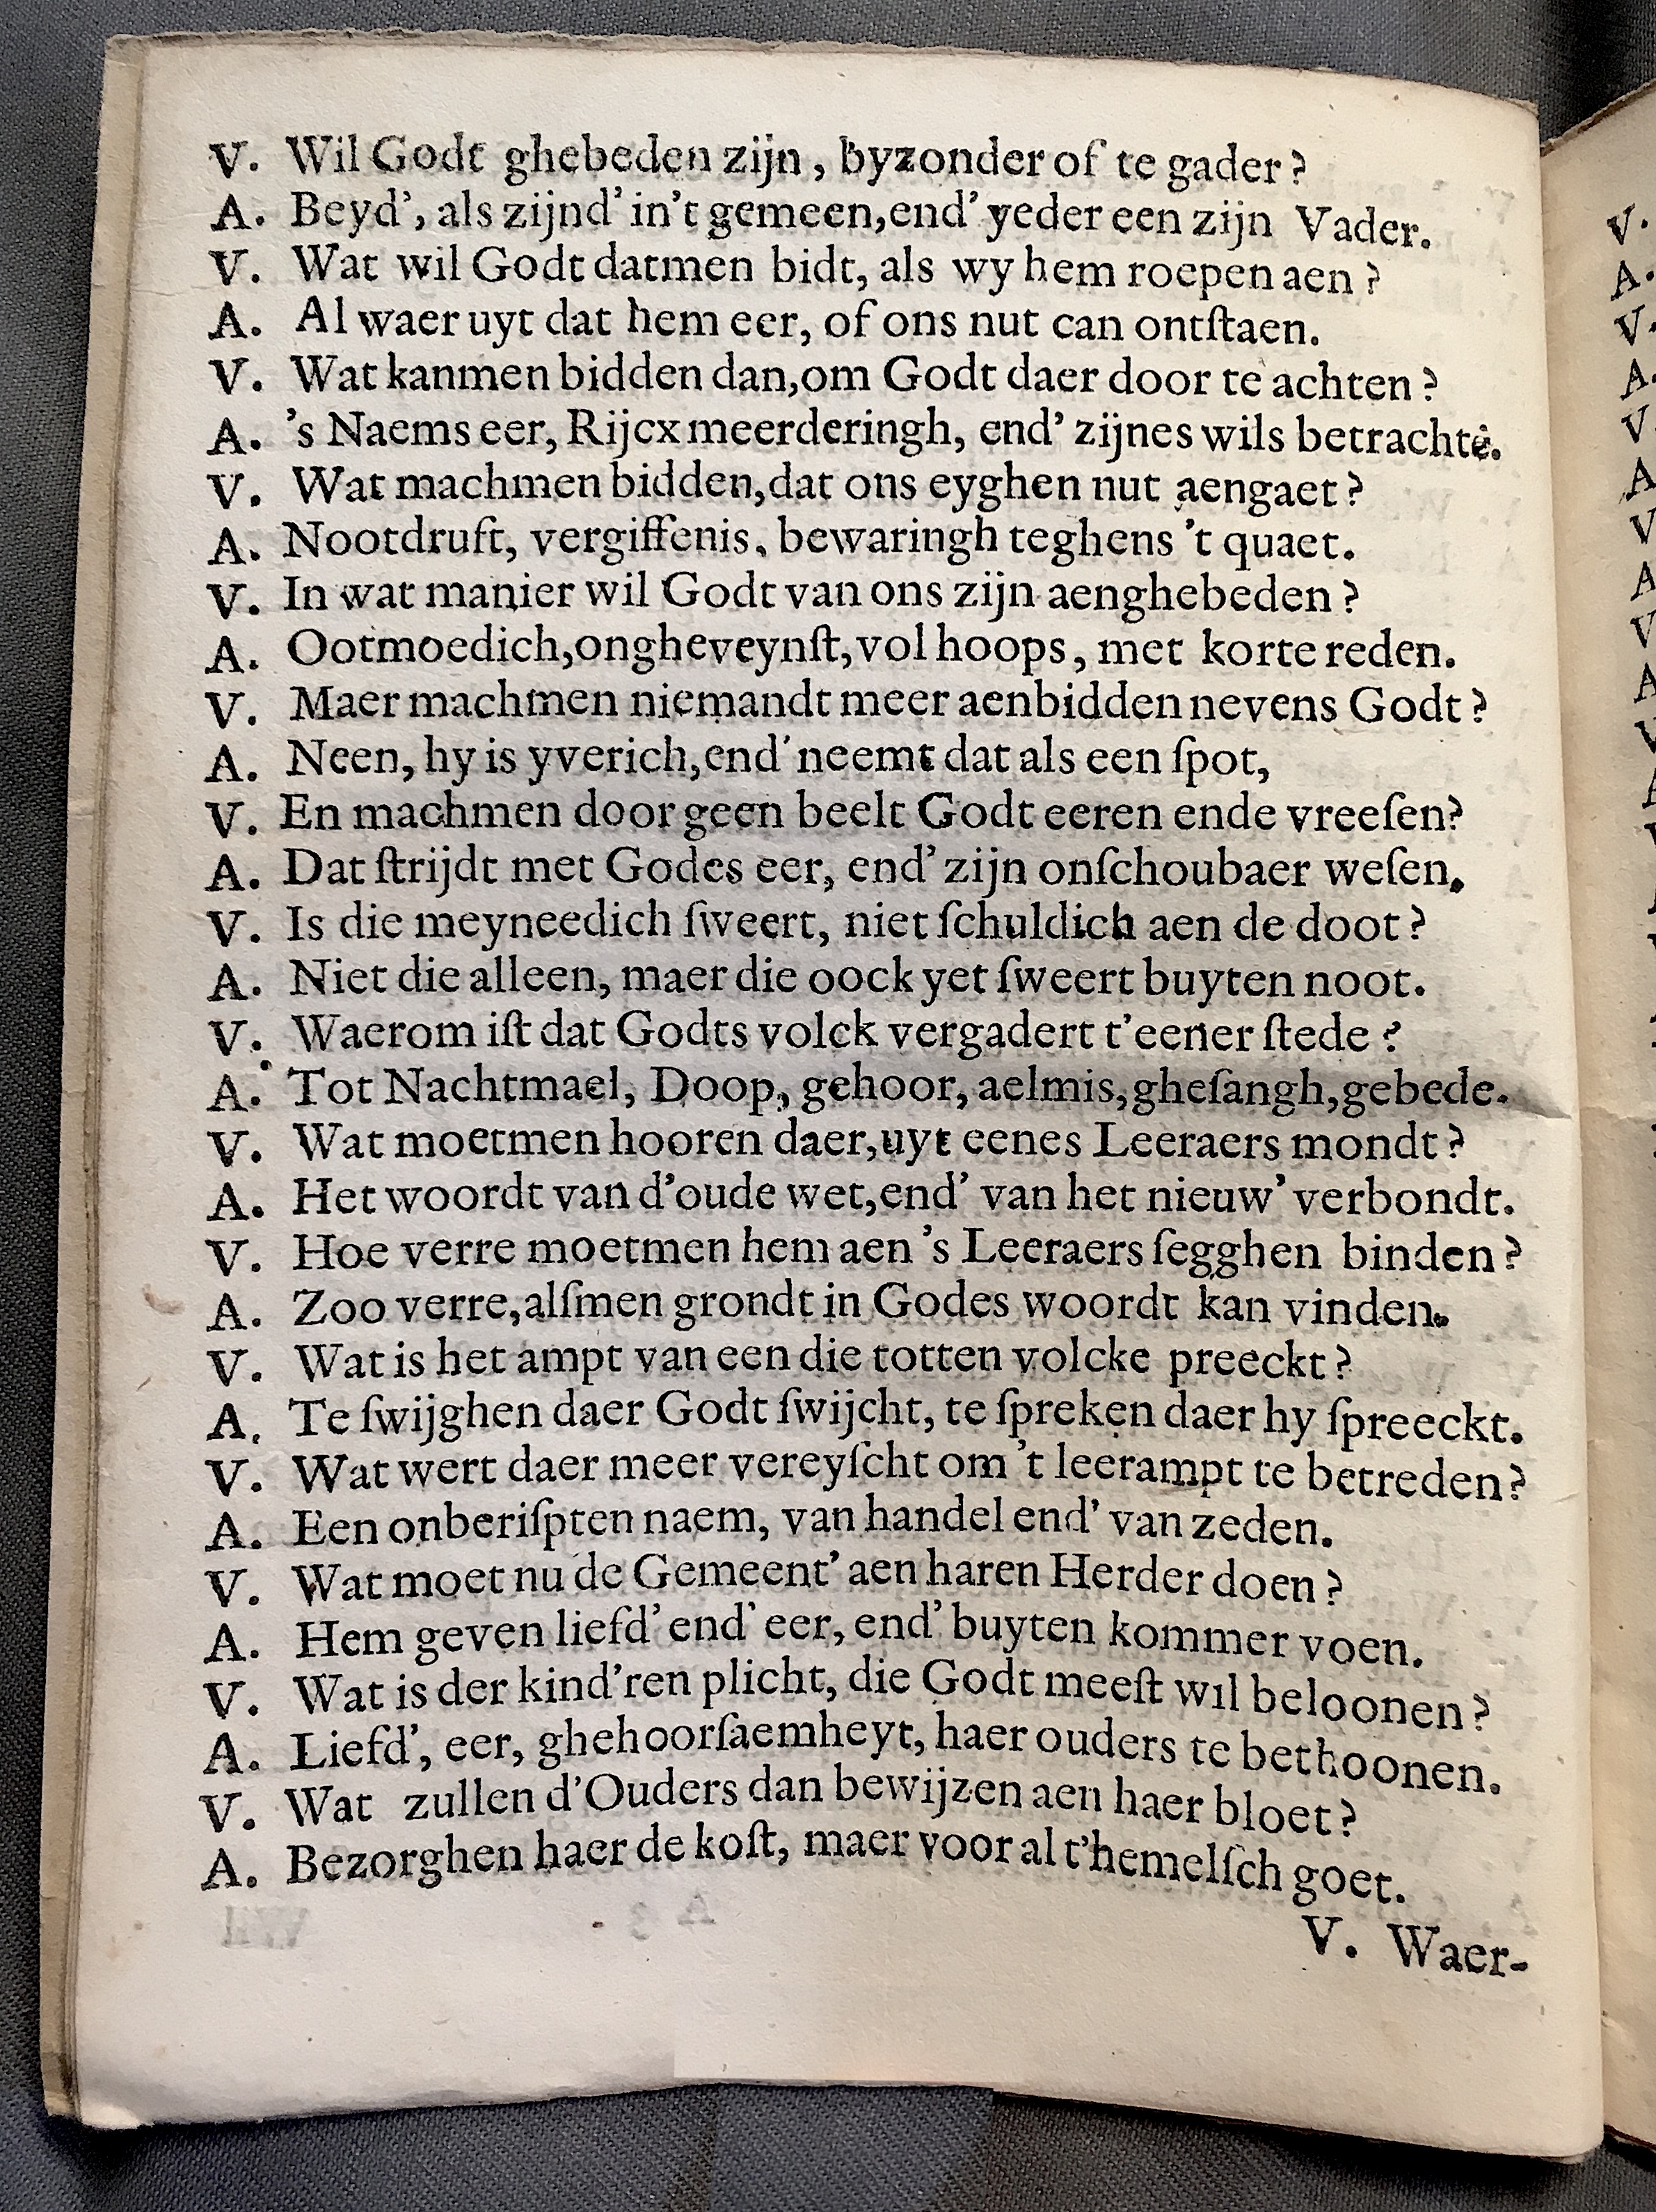 V. Wil Godt ghebeden zijn, byzonder of te gader?
A. Beyd', als zijnd' in't gemeen, end' yeder een zijn Vader.
V. Wat wil Godt datmen bidt, als wy hem roepen aen?
A. Al waer uyt dat hem eer, of ons nut can ontſtaen.
V. Wat kanmen bidden dan, om Godt daer door te achten?
A. 's Naems eer, Rijcx meerderingh, end' zijnes wils betrachtē.
V. Wat machmen bidden, dat ons eyghen nut aengaet?
A. Nootdruft, vergiffenis, bewaringh teghens 't quaet.
V. In wat manier wil Godt van ons zijn aenghebeden?
A. Ootmoedich, ongheveynſt, vol hoops, met korte reden.
V. Maer machmen niemandt meer aenbidden nevens Godt?
A. Neen, hy is yverich, end' neemt dat als een ſpot,
V. En machmen door geen beelt Godt eeren ende vreeſen?
A. Dat ſtrijdt met Godes eer, end' zijn onſchoubaer weſen.
V. Is die meyneedich ſweert, niet ſchuldich aen de doot?
A. Niet die alleen, maer die oock yet ſweert buyten noot.
V. Waerom iſt dat Godts volck vergadert t'eener ſtede?
A. Tot Nachtmael, Doop, gehoor, aelmis, gheſangh, gebede.
V. Wat moetmen hooren daer, uyt eenes Leeraers mondt?
A. Het woordt van d'oude wet, end' van het nieuw' verbondt.
V. Hoe verre moetmen hem aen 's Leeraers ſegghen binden?
A. Zoo verre, alſmen grondt in Godes woordt kan vinden.
V. Wat is het ampt van een die totten volcke preeckt?
A. Te ſwijghen daer Godt ſwijcht, te ſpreken daer hy ſpreeckt.
V. Wat wert daer meer vereyſcht om 't leerampt te betreden?
A. Een onberiſpten naem, van handel end' van zeden.
V. Wat moet nu de Gemeent' aen haren Herder doen?
A. Hem geven liefd' end' eer, end' buyten kommer voen.
V. Wat is der kind'ren plicht, die Godt meeſt wil beloonen?
A. Liefd', eer, ghehoorſaemheyt, haer ouders te bethoonen.
V. Wat zullen d'Ouders dan bewijzen aen haer bloet?
A. Bezorghen haer de koſt, maer voor al t'hemelſch goet.
V. Waer-
V.
A.
V.
A.
V.
A
V
A
V
A